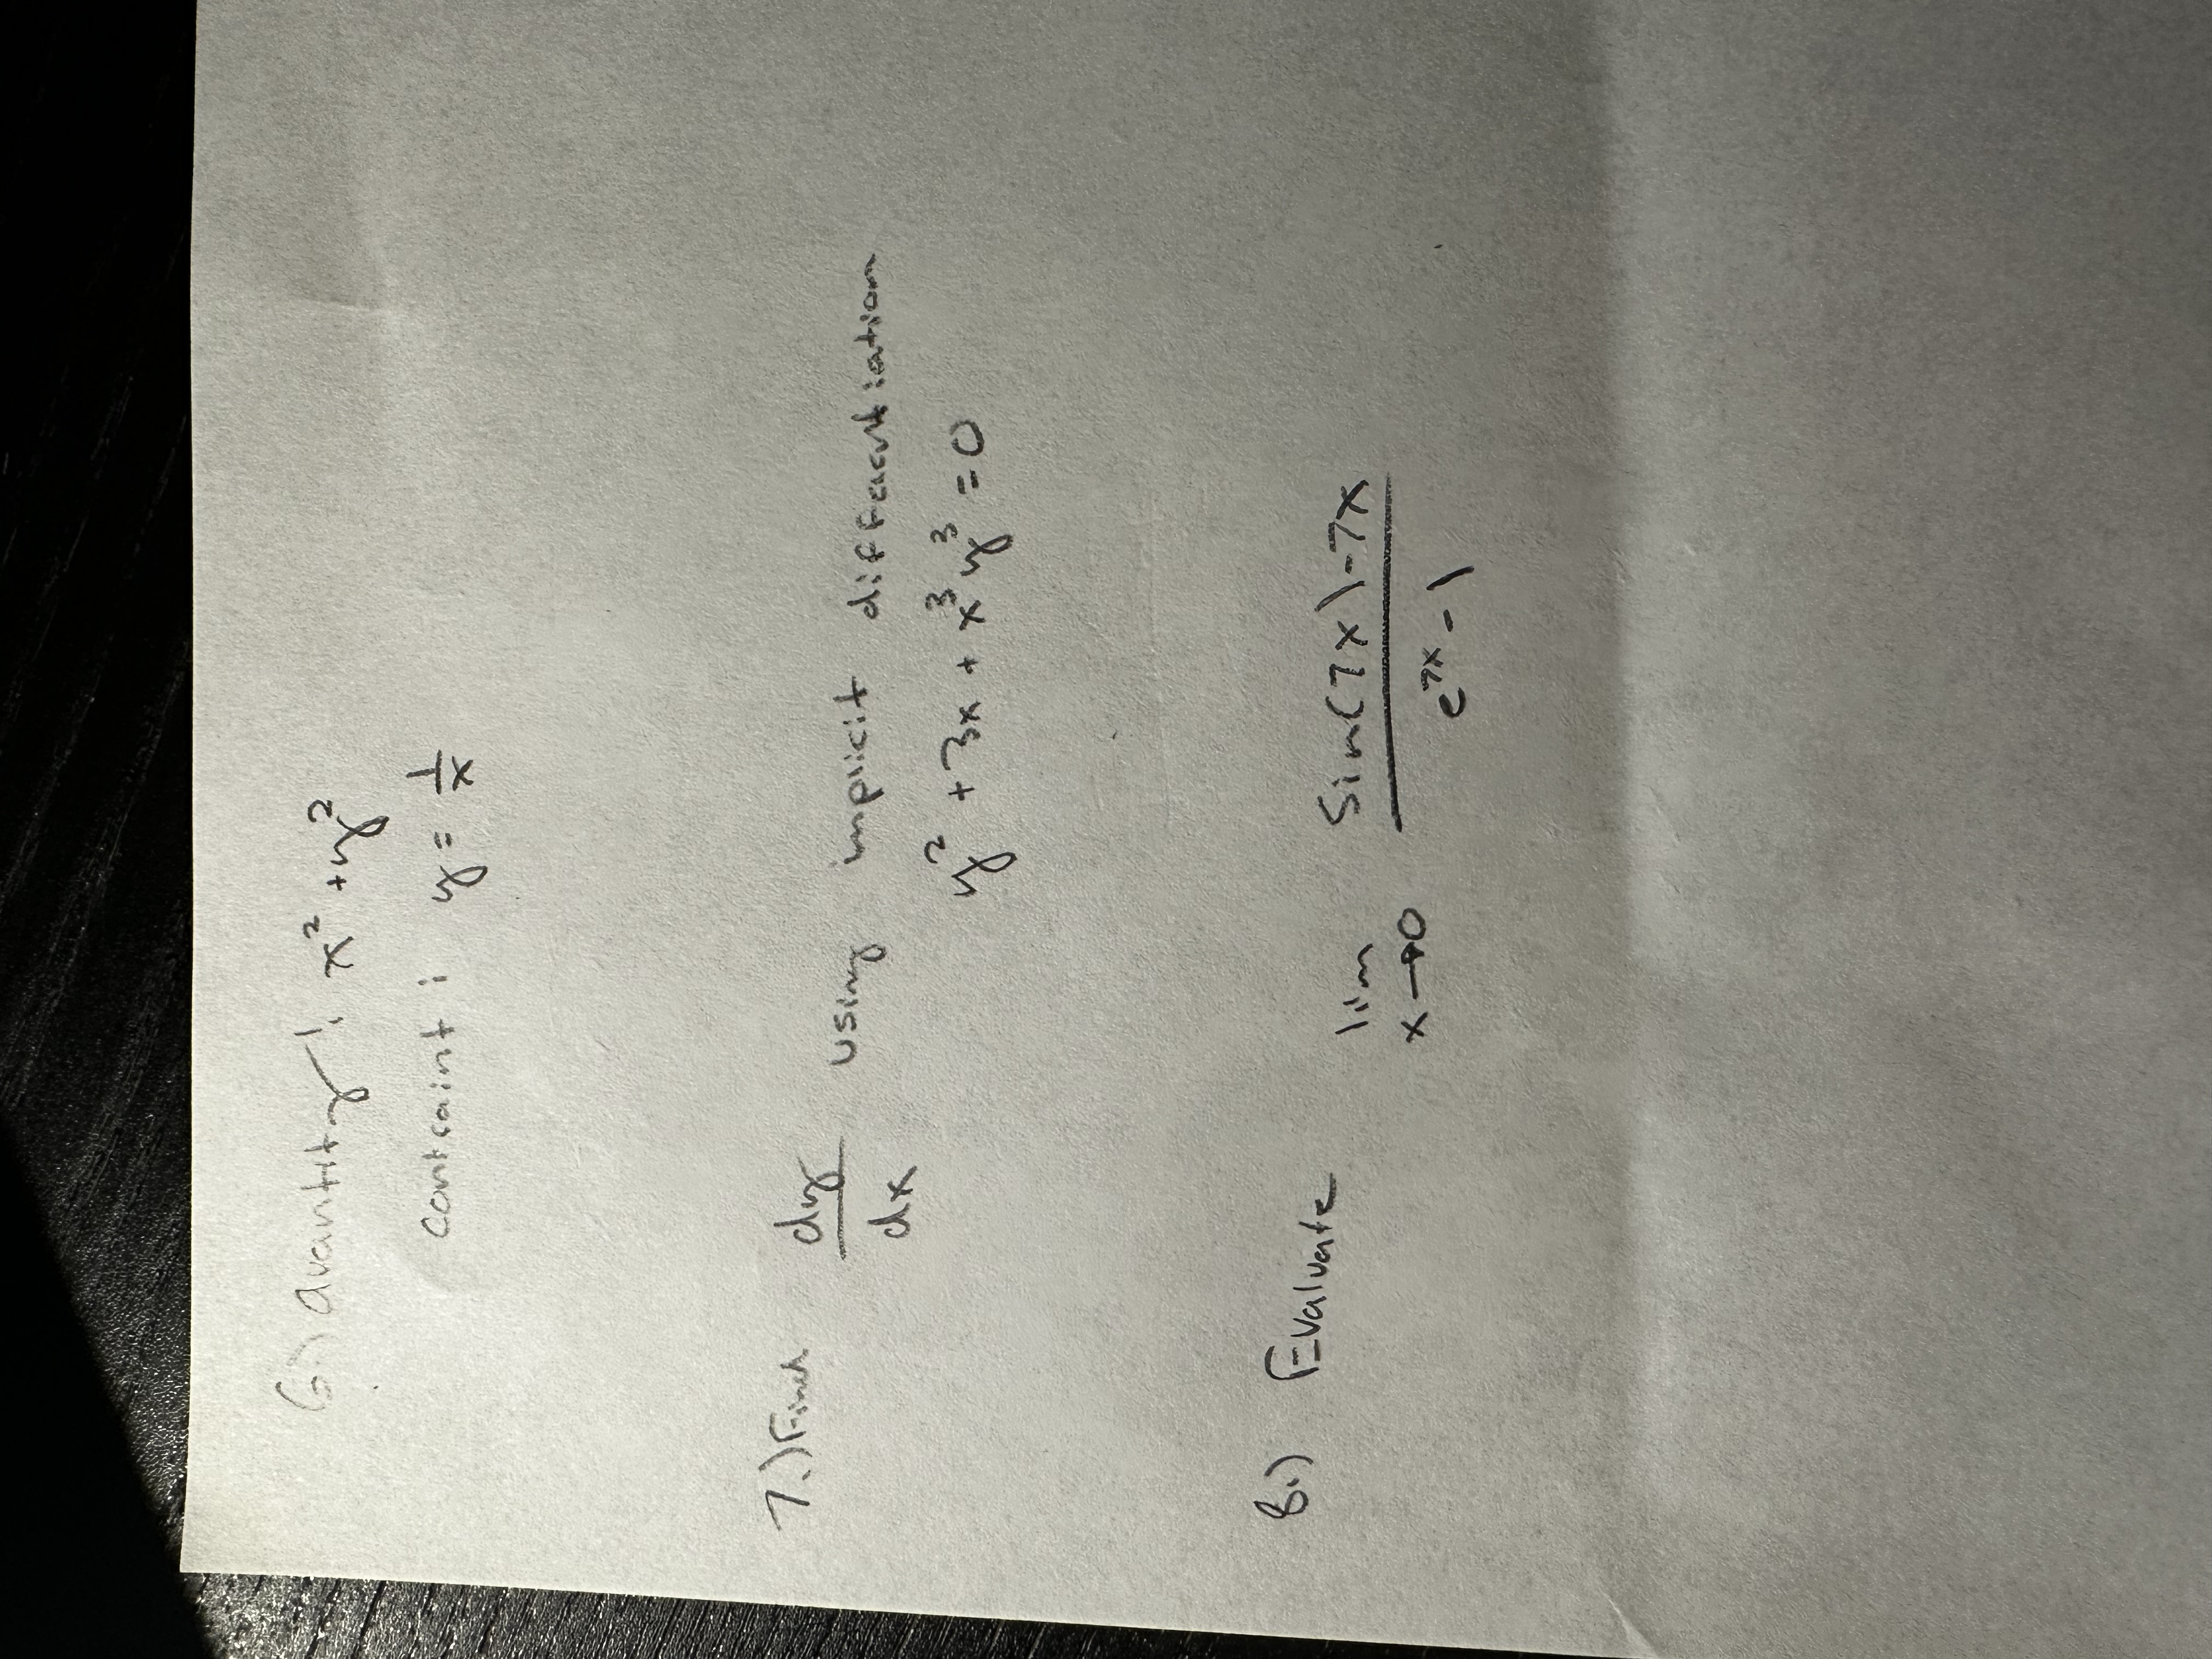 6.) Quantity: x² + y²
contraint: y = 1/x
7.) Find dy/dx using implicit differentiation
y² + 3x + x³y³ = 0
8.) Evaluate lim x→0 (Sin(7x) - 7x)/(e^7x - 1)